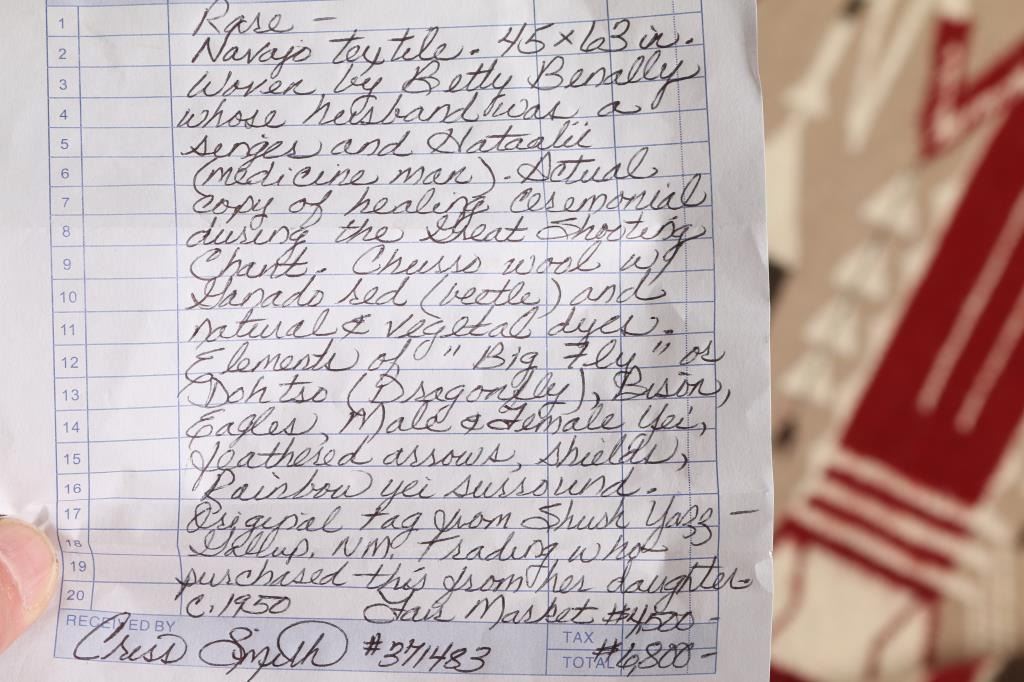 1 Rare -
2 Navajo textile. 45x63 in.
3 Woven by Betty Benally
4 whose husband was a
5 singer and Hataalii
6 (medicine man). Actual
7 copy of healing ceremonial
8 during the Great Shooting
9 Chant. Churro wool w/
10 Ganado red (beetle) and
11 natural & vegetal dyes.
12 Elements of "Big Fly" or
13 Dohtso (Dragonfly), Bison,
14 Eagles, Male & Female Yei,
15 feathered arrows, shields,
16 Rainbow yei surround.
17 Original tag from Shush Yazz -
18 Gallup, NM. Trading who
19 purchased this from her daughter-
20 c. 1950 Fair Market #4,500 -
RECEIVED BY TAX
Criss Smith #371483 TOTAL #6,800 -